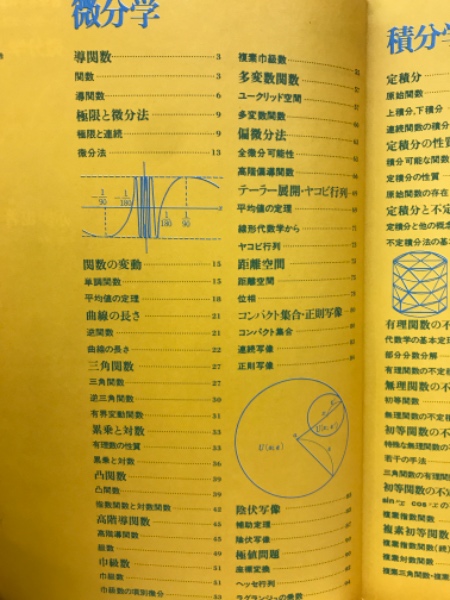 微分学
導関数 3
関数 3
導関数 6
極限と微分法 9
極限と連続 9
微分法 13
関数の変動 15
単調関数 15
平均値の定理 18
曲線の長さ 21
逆関数 21
曲線の長さ 22
三角関数 27
三角関数 27
逆三角関数 30
有界変動関数 31
累乗と対数 33
有理数の性質 33
累乗と対数 36
凸関数 39
凸関数 39
指数関数と対数関数 42
高階導関数 45
高階導関数 45
級数 49
巾級数 51
巾級数 51
巾級数の項別微分
複素巾級数
多変数関数
ユークリッド空間
多変数関数
偏微分法
全微分可能性
高階偏導関数
テーラー展開・ヤコビ行列
平均値の定理
線形代数学から
ヤコビ行列
距離空間
距離空間
位相
コンパクト集合・正則写像
コンパクト集合
連続写像
正則写像
陰伏写像
補助定理
陰伏写像
極値問題
座標定義
ヘッセ行列
ラグランジュの乗数
積分学
定積分
原始関数
上積分,下積分
連続関数の積分
定積分の性質
積分可能な関数
定積分の性質
原始関数の存在
定積分と不定
定積分と他の概念
不定積分法の基
有理関数の不
代数学の基本定
部分分数分解
有理関数の不定
無理関数の不
初等関数
無理関数の不定
初等関数の不
特殊な無理関数の不
若干の手法
三角関数の有理関
初等関数の不
複素指数関数
複素初等関数
複素指数関数(続)
複素対数関数
複素三角関数・複素